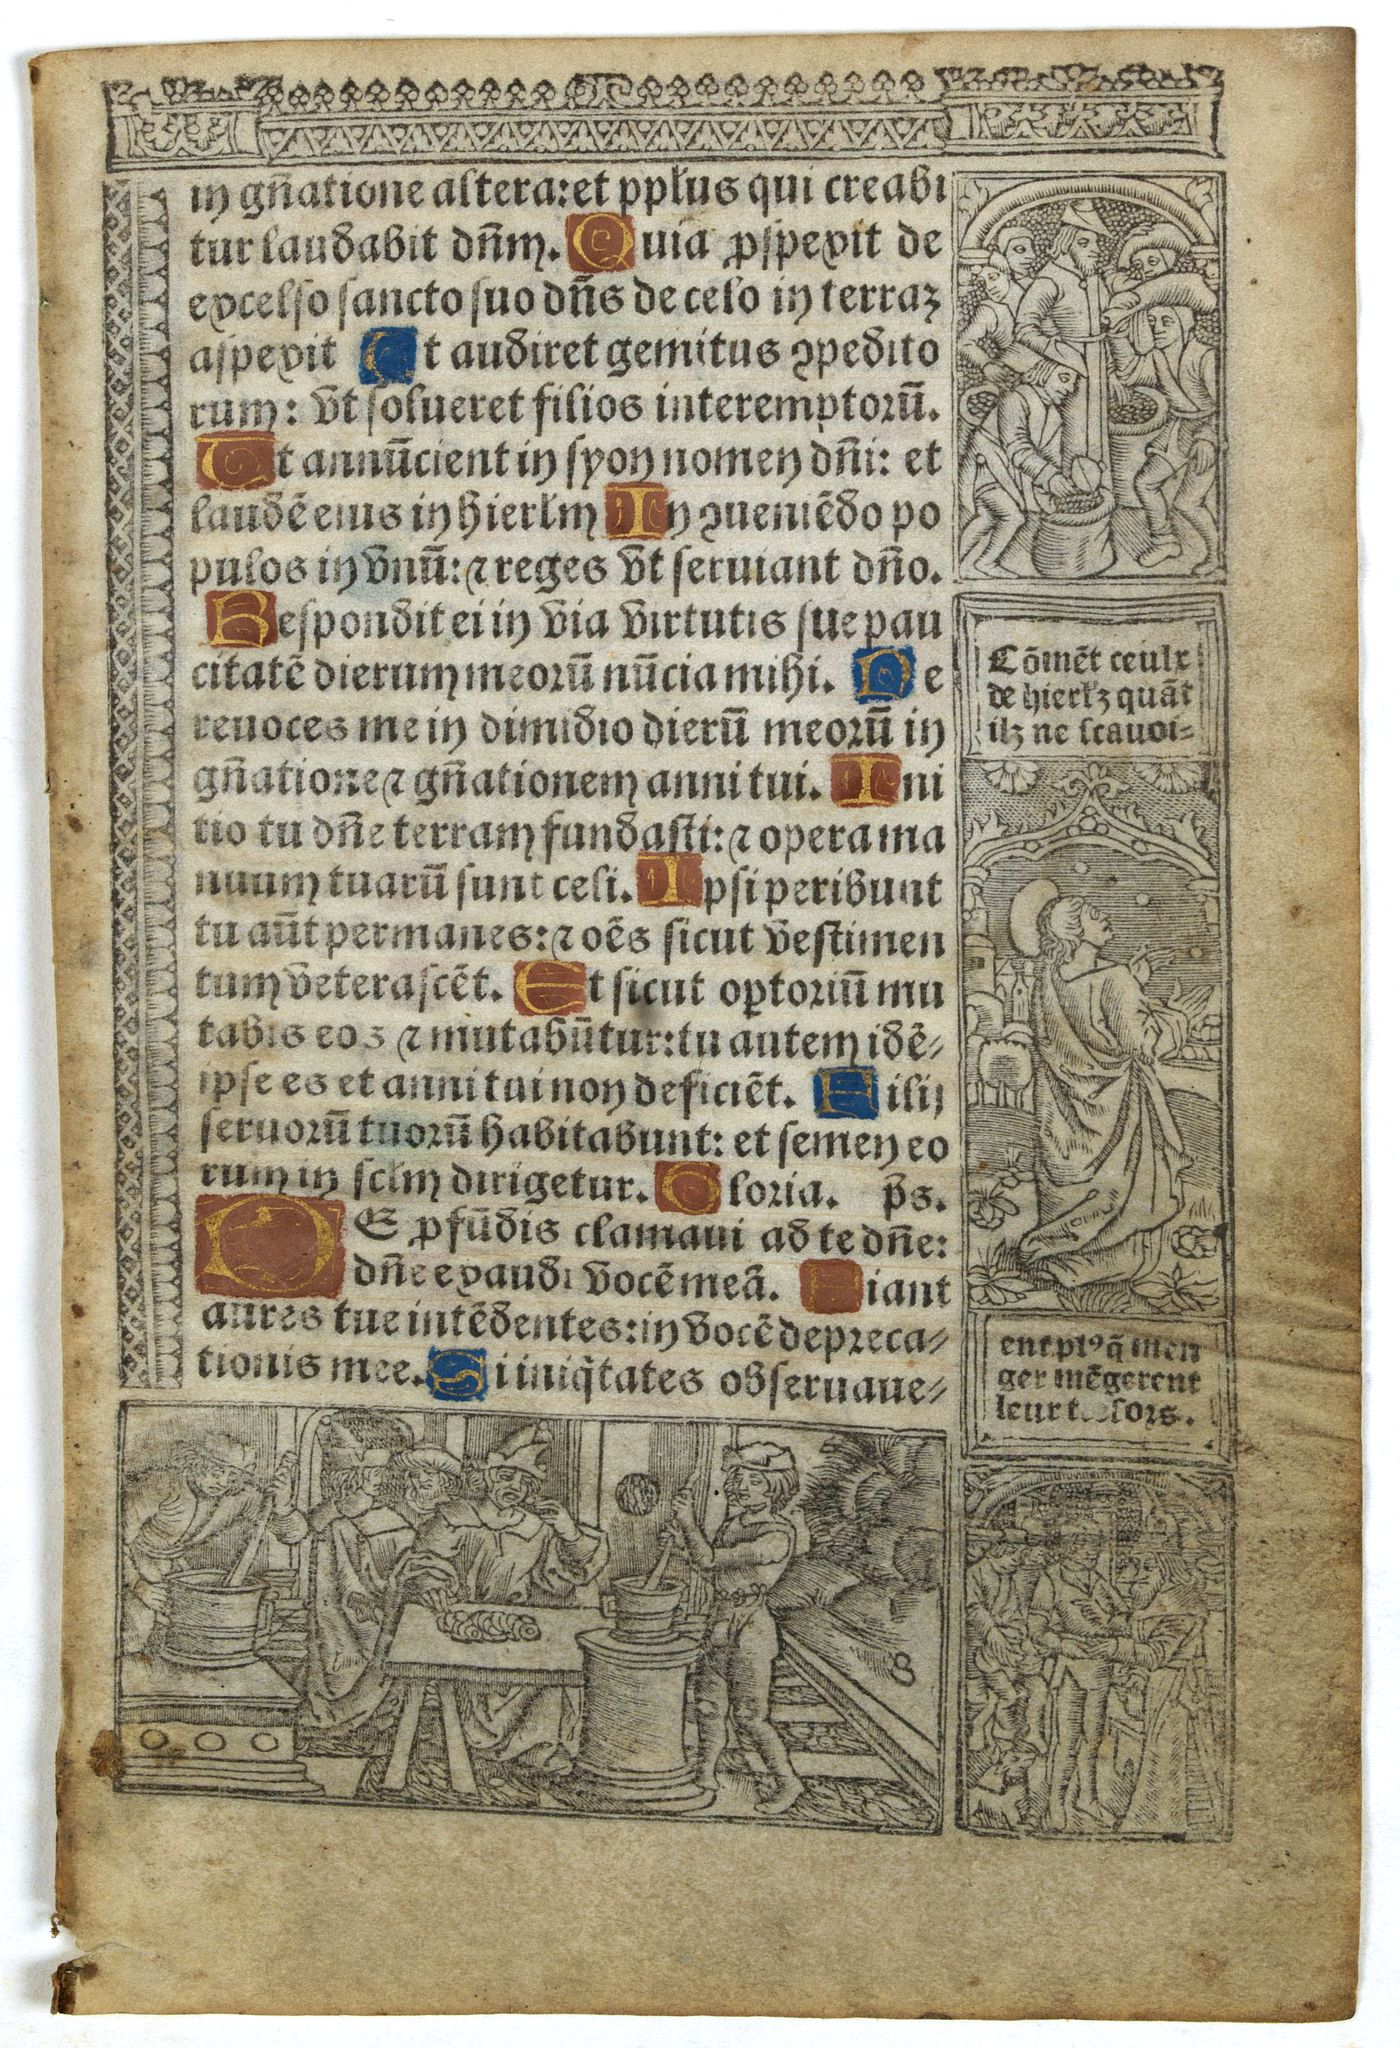 in gñatione altera: et ppłus qui creabi
tur laudabit dñm. Quia ꝓspexit de
excelso sancto suo dñs de celo in terraʒ
aspexit Ut audiret gemitus ꝯpedito
rum: vt solueret filios interemptorū.
Ut annūcient in syon nomen dñi: et
laudē eius in hierłm In ꝯueniēdo po
pulos in vnū: ⁊ reges vt seruiant dño.
Respondit ei in via virtutis sue pau
citatē dierum meorū nūcia mihi. Ne
reuoces me in dimidio dierū meorū in
gñatione ⁊ gñationem anni tui. Ini
tio tu dñe terram fundasti: ⁊ opera ma
nuum tuarū sunt celi. Ipsi peribunt
tu aūt permanes: ⁊ oēs sicut vestimen
tum veterascēt. Et sicut oꝑtoriū mu
tabis eos ⁊ mutabūtur: tu autem idē⸗
ipse es et anni tui non deficiēt. Filij
seruorū tuorū habitabunt: et semen eo
rum in sclm dirigetur. Gloria. ps̄.
DE ꝓfūdis clamaui ad te dñe:
dñe exaudi vocē meā. Fiant
aures tue intēdentes: in vocē depreca⸗
tionis mee. Si iniq̄tates obseruaue⸗
Cōmēt ceulx
de hierłʒ quāt
ilʒ ne scauoi⸗
ent plꝰ q̄ men
ger mēgerent
leur
8